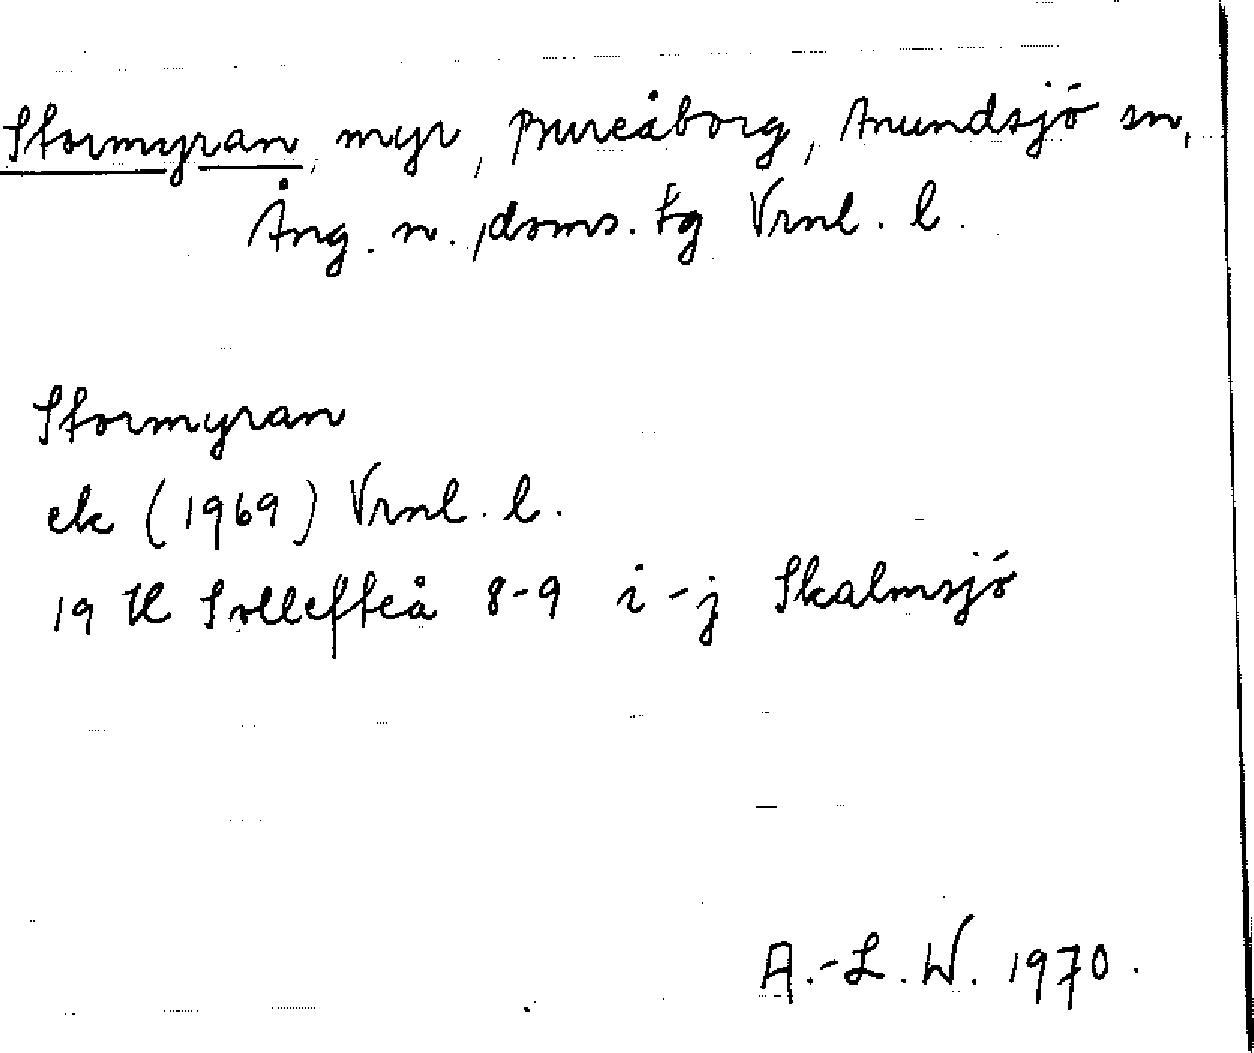 Stormyran, myr, Bureåborg, Anundsjö sn,
Ång. n., doms. tg Vrnl. l.
Stormyran
ek (1969) Vrnl. l.
19 H Sollefteå 8-9 i-j Skalmsjö
A.-L. W. 1970.